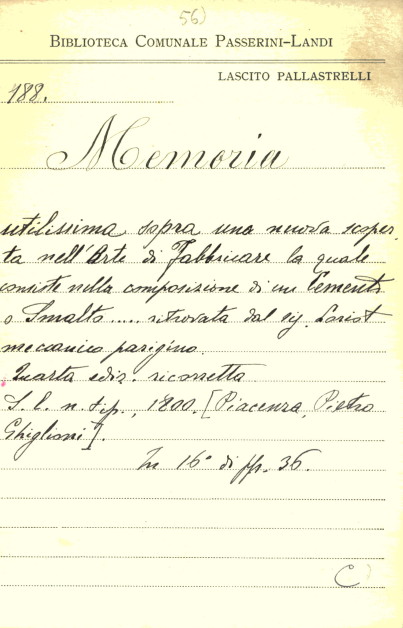 56)
BIBLIOTECA COMUNALE PASSERINI-LANDI
LASCITO PALLASTRELLI
188.
Memoria
utilissima sopra una nuova scoper
ta nell'Arte di Fabbricare la quale
consiste nella composizione di un Cemento
o Smalto..... ritrovata dal sig. Loriot
meccanico parigino.
Quarta ediz. ricorretta
S. l. n. tip., 1800. [Piacenza, Pietro
Ghiglioni].
In 16° di pp. 36.
C